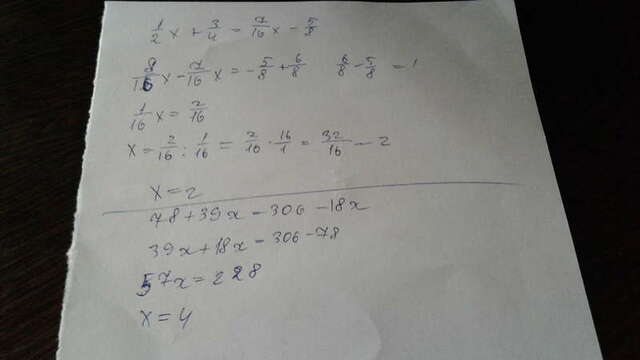 1/2 x + 3/4 = 7/16 x - 5/8
8/16 x - 7/16 x = - 5/8 + 6/8   6/8 - 5/8 = 1
1/16 x = 2/16
x = 2/16 : 1/16 = 2/16 · 16/1 = 32/16 - 2
x = 2
78 + 39x - 306 - 18x
39x + 18x - 306 - 78
57x = 228
x = 4